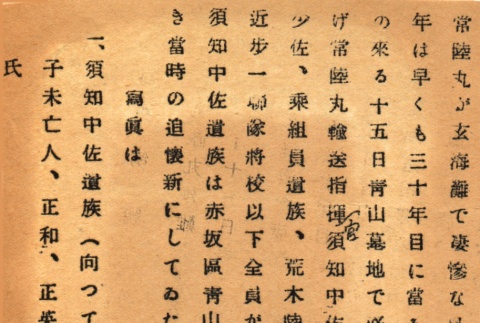 常陸丸が玄海灘で凄慘な
年は早くも三十年目に當
の來る十五日靑山墓地で
げ常陸丸輸送指揮官須知中佐
少佐、乘組員遺族、荒木陸
近步一聯隊將校以下全員が
須知中佐遺族は赤坂區靑山
き當時の追懷新にしてゐた
寫眞は
一、須知中佐遺族(向つて
子未亡人、正和、正英
氏